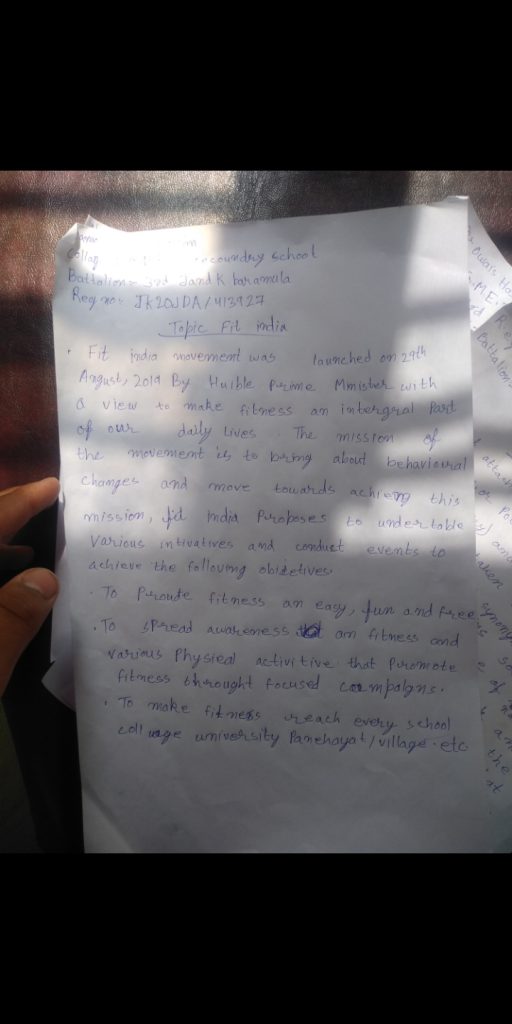 Collag
secoundry school
Battalion 3rd J and K baramula
Reg no: JK20JDA/413927
Topic Fit india
• Fit india movement was launched on 29th
August, 2019 By Huible Prime Mmister with
a view to make fitness an intergral Part
of our daily lives. The mission of
the movement is to bring about behavioural
Changes and move towards achieng this
mission, fit India Purposes to undertable
Various intivatives and conduct events to
achieve the following objectives.
• To Piroute fitness an easy, fun and free
• To spread awareness an fitness and
various Physical activitive that Piromote
fitness throught focused campaigns.
• To make fitness reach every school
college university Panchayat/village.etc